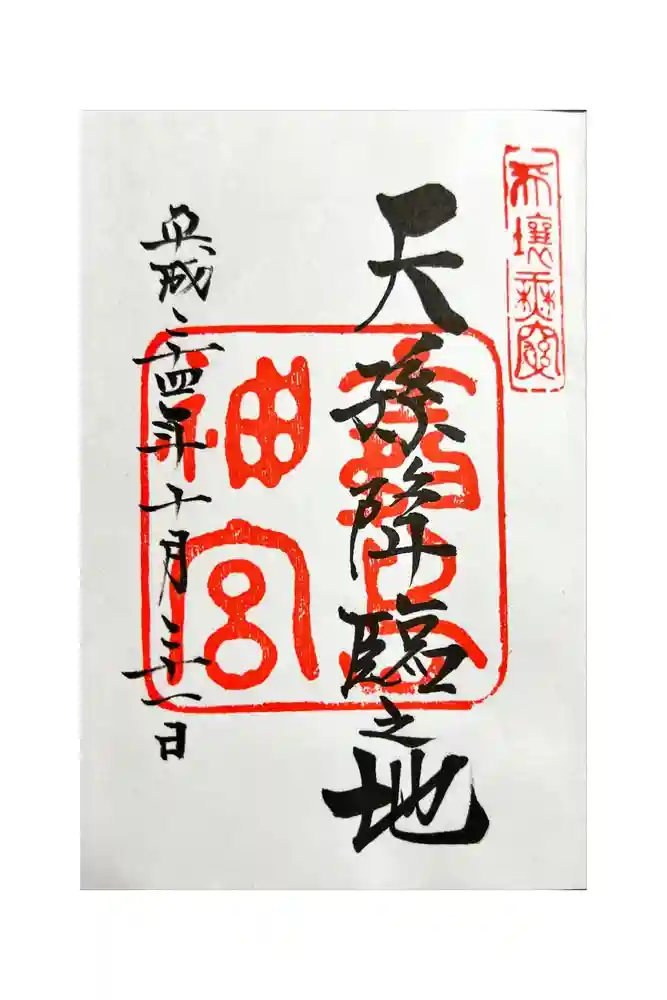 天孫降臨之地
平成二十四年十月二十一日
神宮